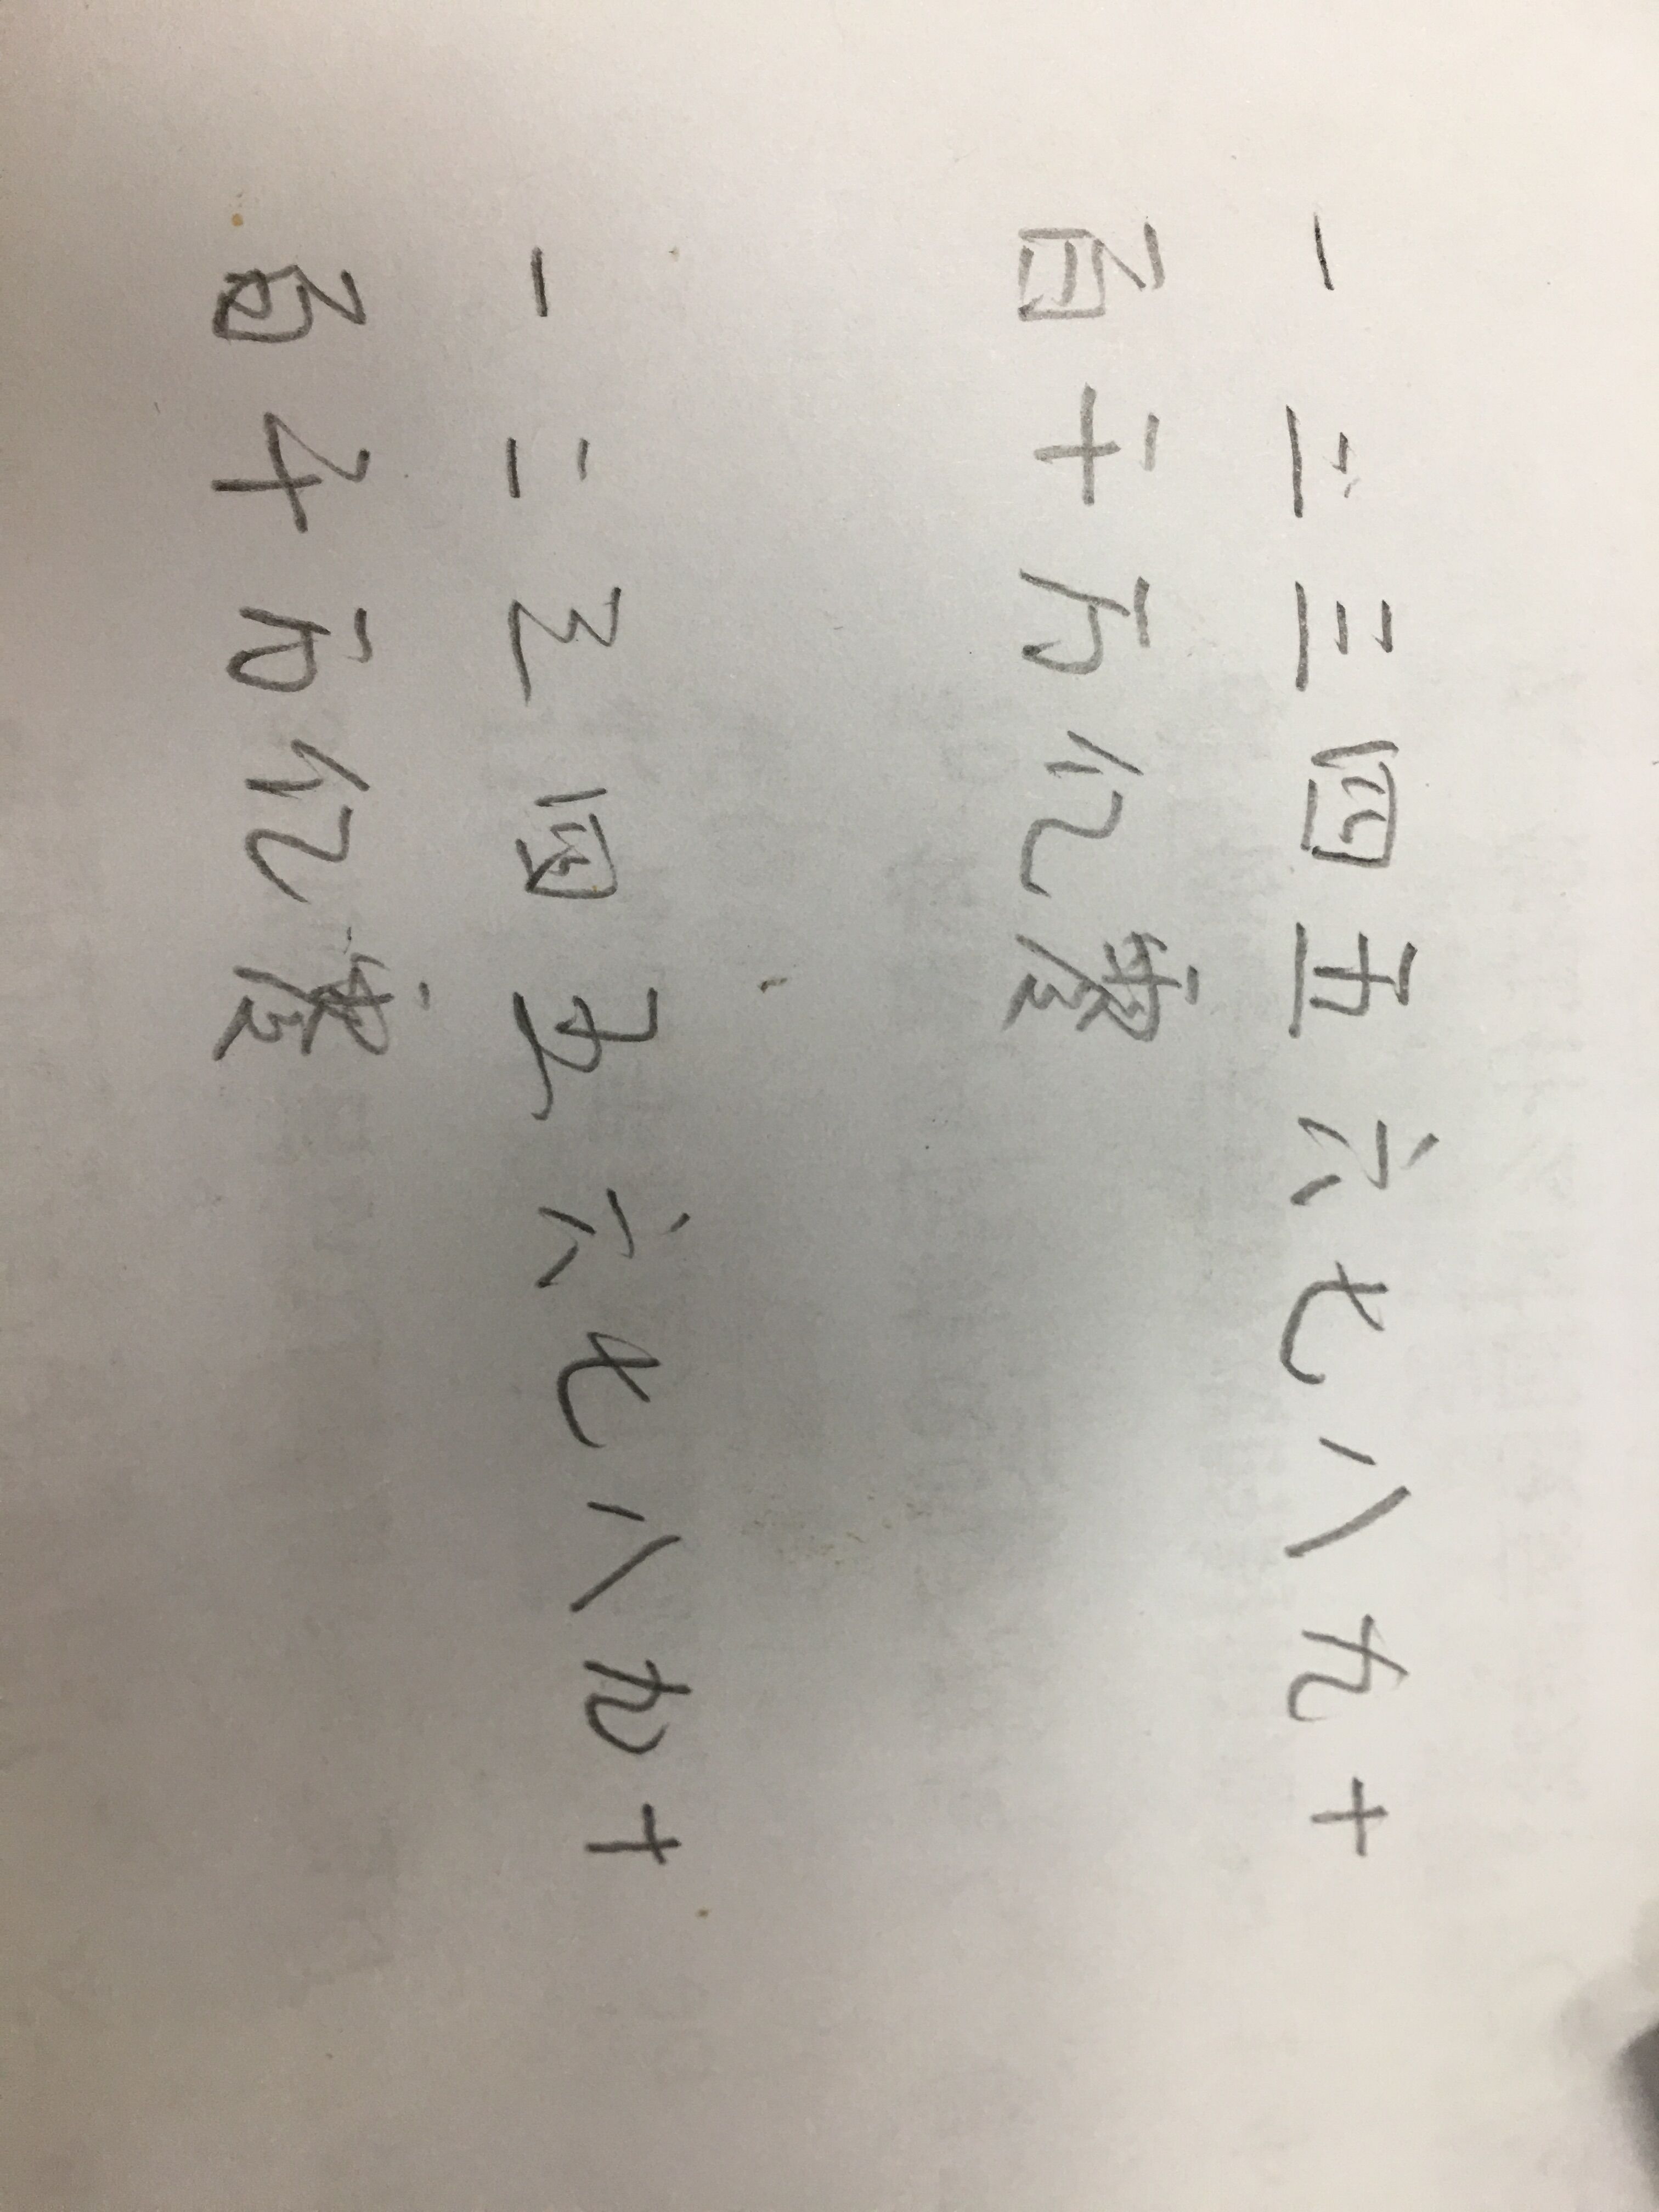 一二三四五六七八九十
百千万亿零
一二三四五六七八九十
百千万亿零